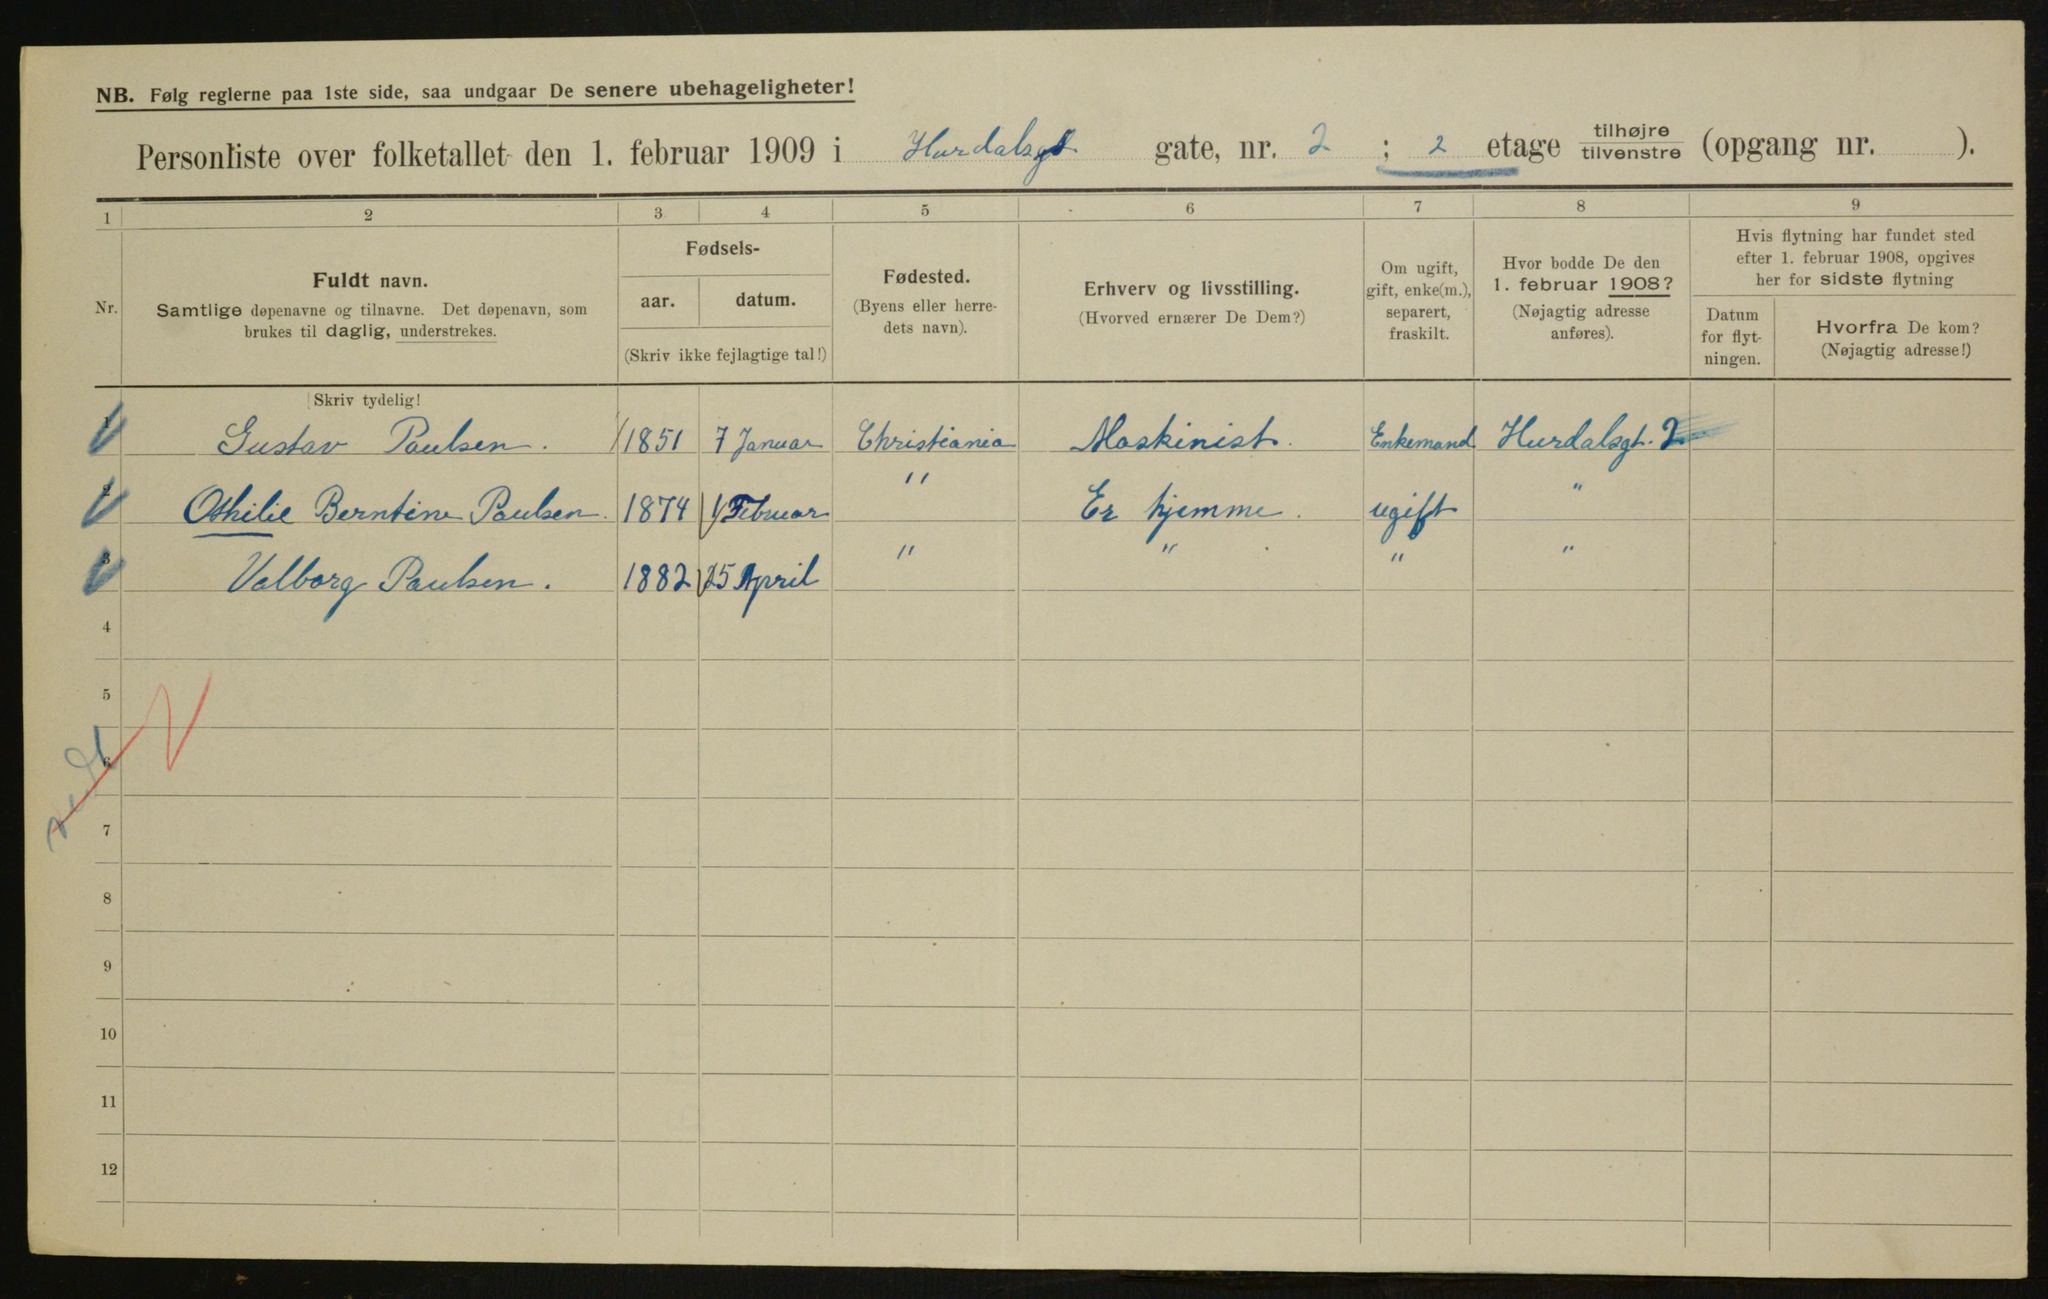 NB. Følg reglerne paa 1ste side, saa undgaar De senere ubehageligheter!
Personliste over folketallet den 1. februar 1909 i Hurdalsgt gate, nr. 2 ; 2 etage tilhøjre/tilvenstre (opgang nr. ).
1 2 3 4 5 6 7 8 9
Nr.
Fuldt navn.
Samtlige døpenavne og tilnavne. Det døpenavn, som
brukes til daglig, understrekes.
Fødsels-
aar. datum.
(Skriv ikke fejlagtige tal!)
Fødested.
(Byens eller herre-
dets navn).
Erhverv og livsstilling.
(Hvorved ernærer De Dem?)
Om ugift,
gift, enke(m.),
separert,
fraskilt.
Hvor bodde De den
1. februar 1908?
(Nøjagtig adresse
anføres).
Hvis flytning har fundet sted
efter 1. februar 1908, opgives
her for sidste flytning
Datum
for flyt-
ningen.
Hvorfra De kom?
(Nøjagtig adresse!)
Skriv tydelig!
1 Gustav Paulsen. 1851 7 Januar Christiania Maskinist. Enkemand Hurdalsgt. 2
2 Othilie Berntine Paulsen. 1874 1 Februar " Er hjemme. ugift "
3 Valborg Paulsen. 1882 25 April " " " "
4
5
6
7
8
9
10
11
12